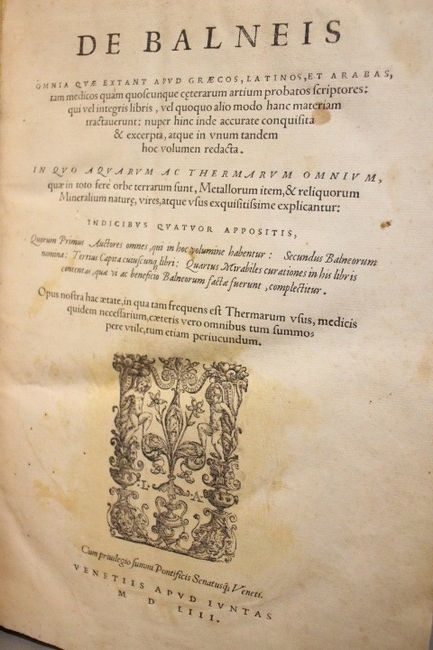 DE BALNEIS
OMNIA QVÆ EXTANT APVD GRÆCOS, LATINOS, ET ARABAS,
tam medicos quàm quoscunque cęterarum artium probatos scriptores:
qui vel integris libris, vel quoquo alio modo hanc materiam
tractauerunt: nuper hinc inde accurate conquisita
& excerpta, atque in vnum tandem
hoc volumen redacta.
IN QVO AQVARVM AC THERMARVM OMNIVM,
quæ in toto ferè orbe terrarum sunt, Metallorum item, & reliquorum
Mineralium naturę, vires, atque vsus exquisitissime explicantur:
INDICIBVS QVATVOR APPOSITIS,
Quorum Primus Auctores omnes, qui in hoc volumine habentur: Secundus Balneorum
nomina: Tertius Capita cuiuscunq; libri: Quartus Mirabiles curationes in his libris
contentas, quæ vi ac beneficio Balneorum factæ fuerunt, complectitur.
Opus nostra hac ætate, in qua tam frequens est Thermarum vsus, medicis
quidem necessarium, cæteris vero omnibus tum summo-
pere vtile, tum etiam periucundum.
L A
Cum priuilegio summi Pontificis Senatusq; Veneti.
VENETIIS APVD IVNTAS
M D LIII.